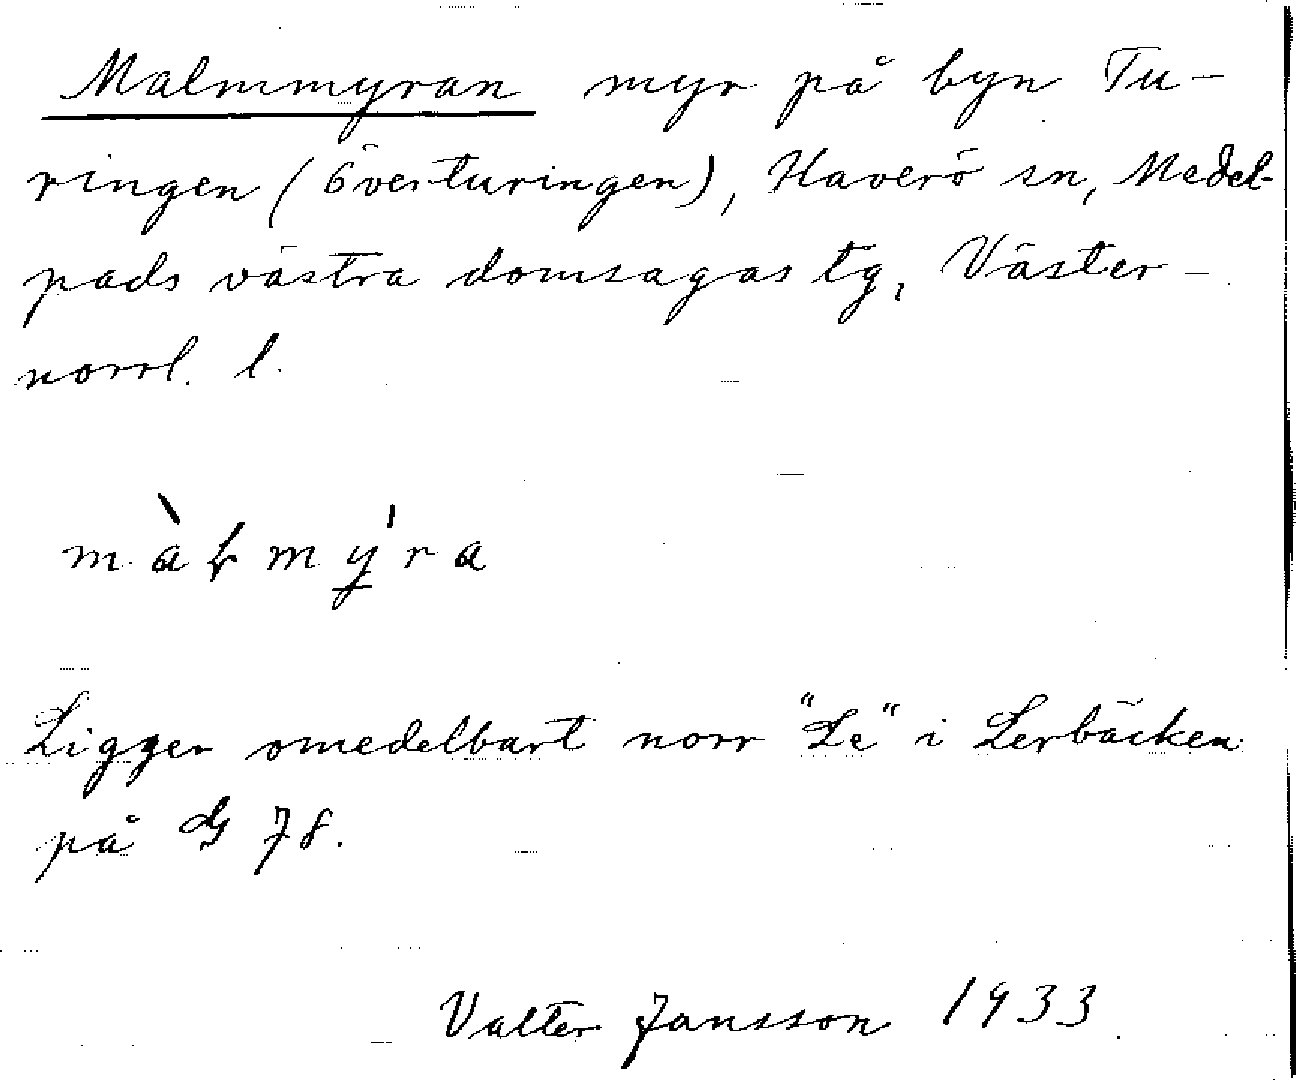 Malmmyran myr på byn Tu-
ringen (Överturingen), Haverö sn, Medel-
pads västra domsagas tg, Väster-
norrl. l.
Ligger omedelbart norr "Le" i Lerbäcken
på G 78.
Valter Jansson 1933